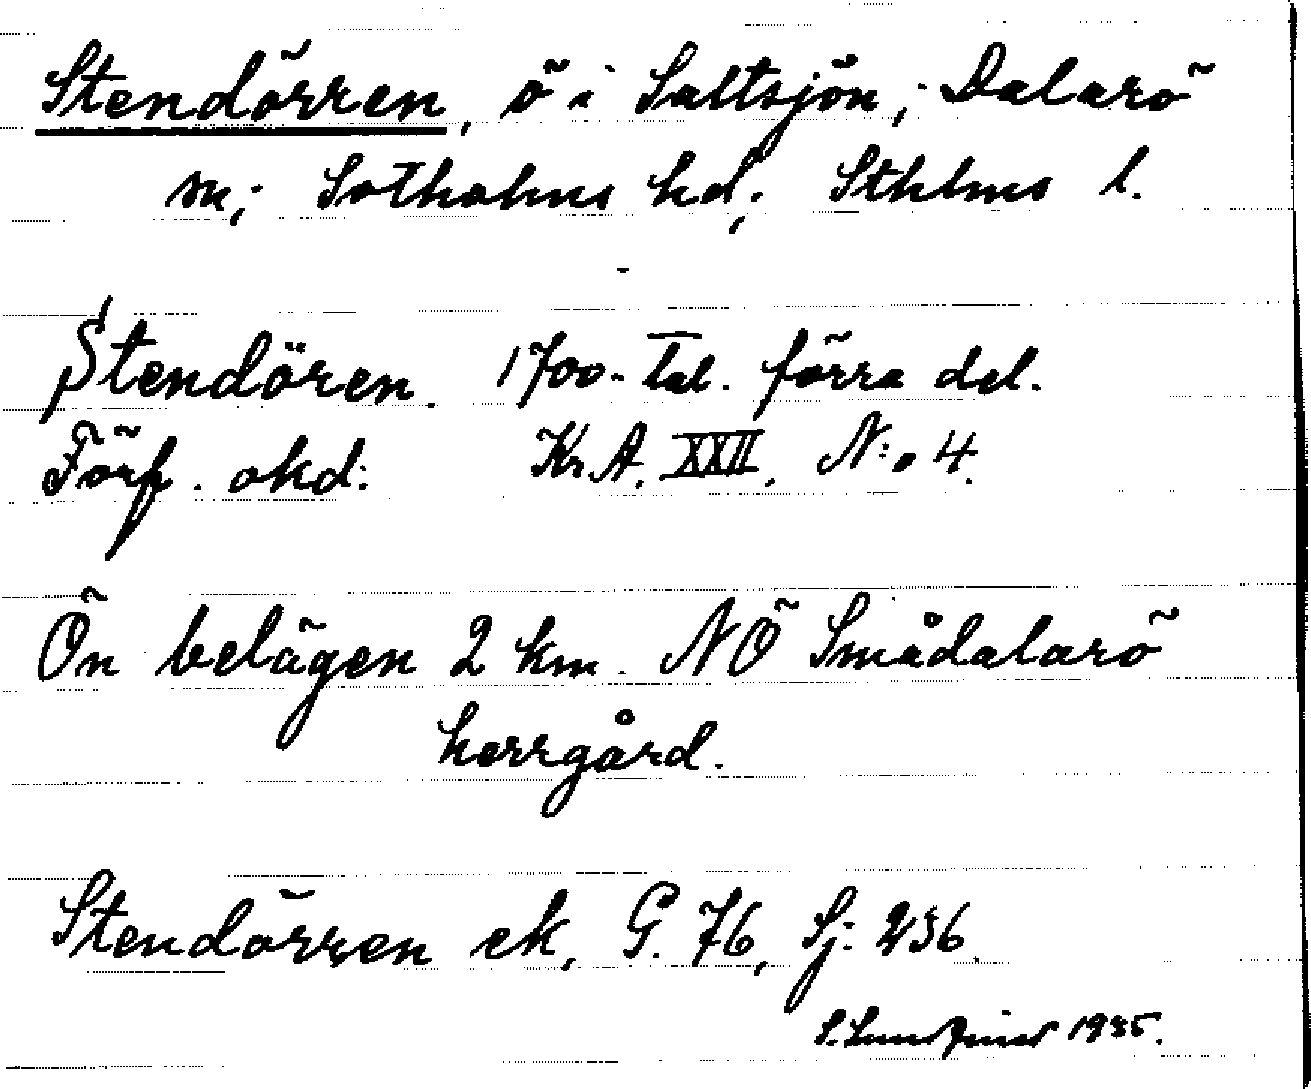 Stendörren, ö i Saltsjön; Dalarö
sn; Sotholms hd; Sthlms l.
Stendören. 1700-tal. förra del.
Förf. okd: Kr.A. XXII, N:o 4.
Ön belägen 2 km. NÖ Smådalarö
herrgård.
Stendörren ek, G. 76, Sj: 236.
S. 1935.